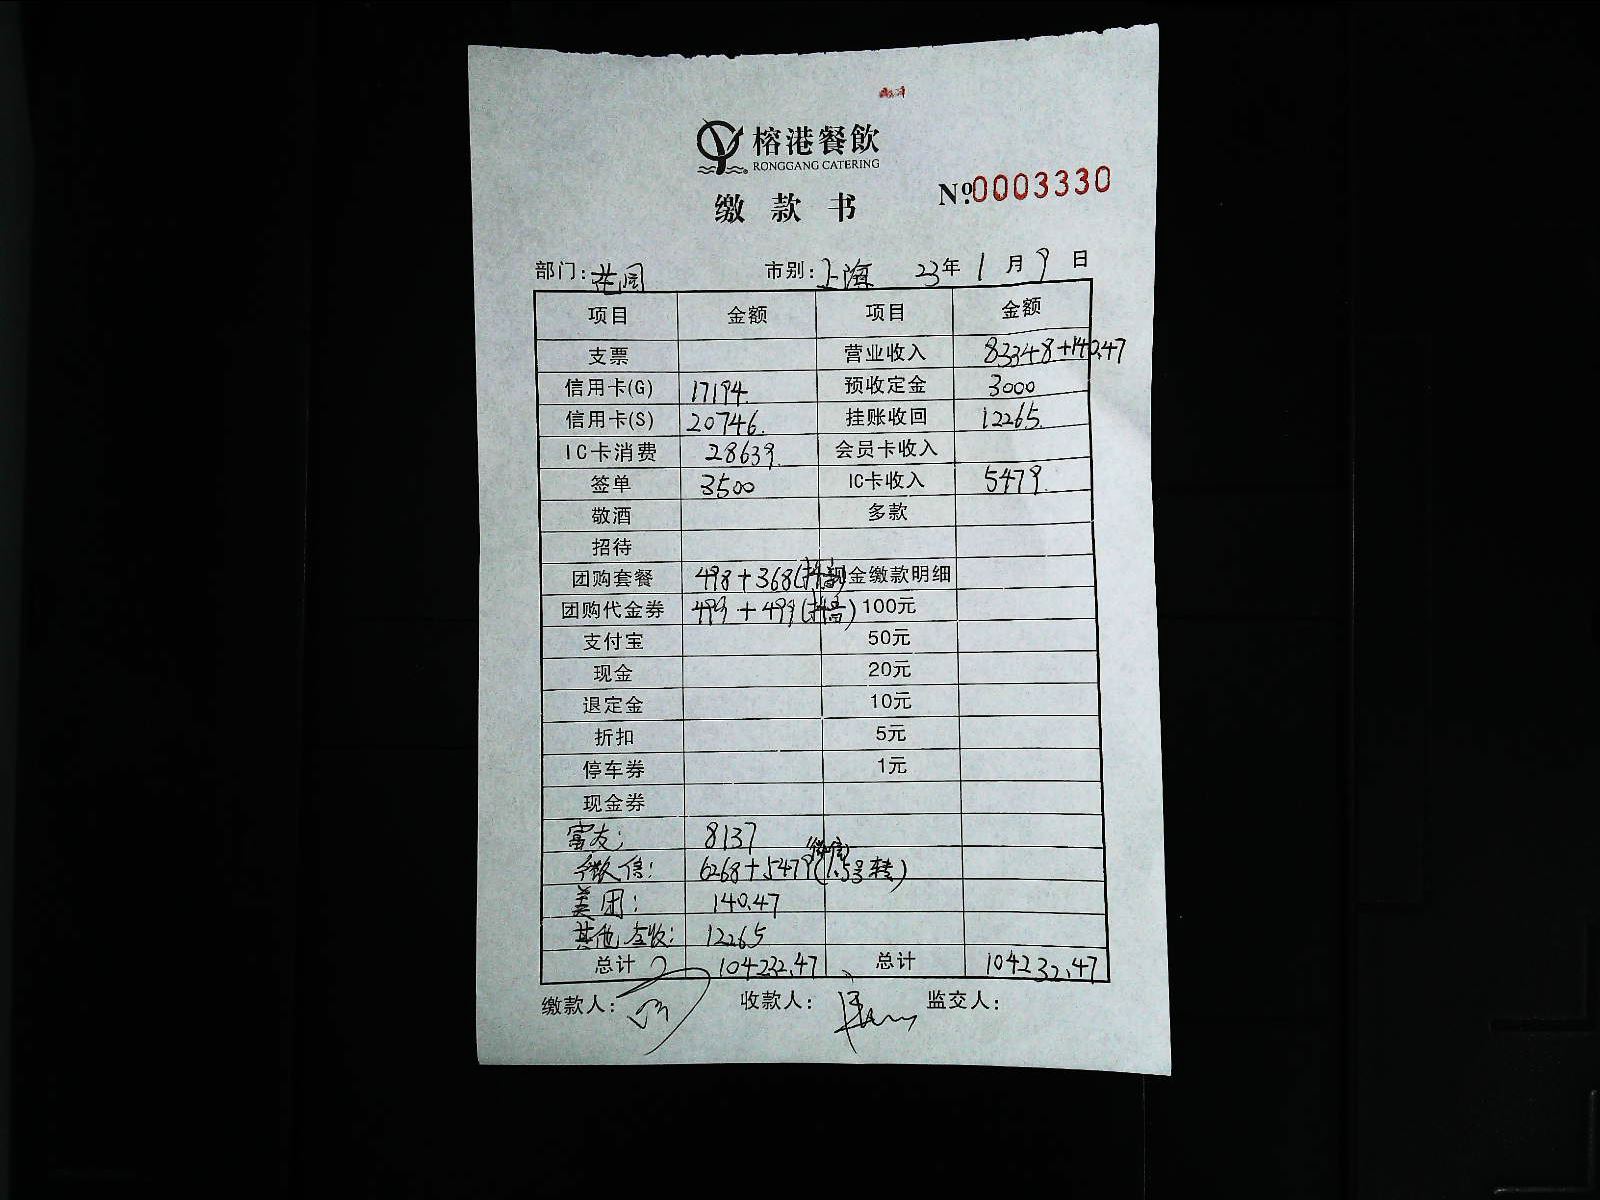 榕港餐飲
RONGGANG CATERING
缴款书
Nº.0003330
部门:花园 市别:上海 23年1月9日
项目 金额 项目 金额
支票 营业收入 83348+140.47
信用卡(G) 17194. 预收定金 3000
信用卡(S) 20746. 挂账收回 12265.
IC卡消费 28639. 会员卡收入
签单 3500 IC卡收入 5479.
敬酒 多款
招待
团购套餐 498+368(抖音) 现金缴款明细
团购代金券 499+499(抖音) 100元
支付宝 50元
现金 20元
退定金 10元
折扣 5元
停车券 1元
现金券
富友: 8137
微信: 6268+5479(微信)(1.5号转)
美团: 140.47
其他应收: 12265
总计 104232.47 总计 104232.47
缴款人: 收款人: 监交人: